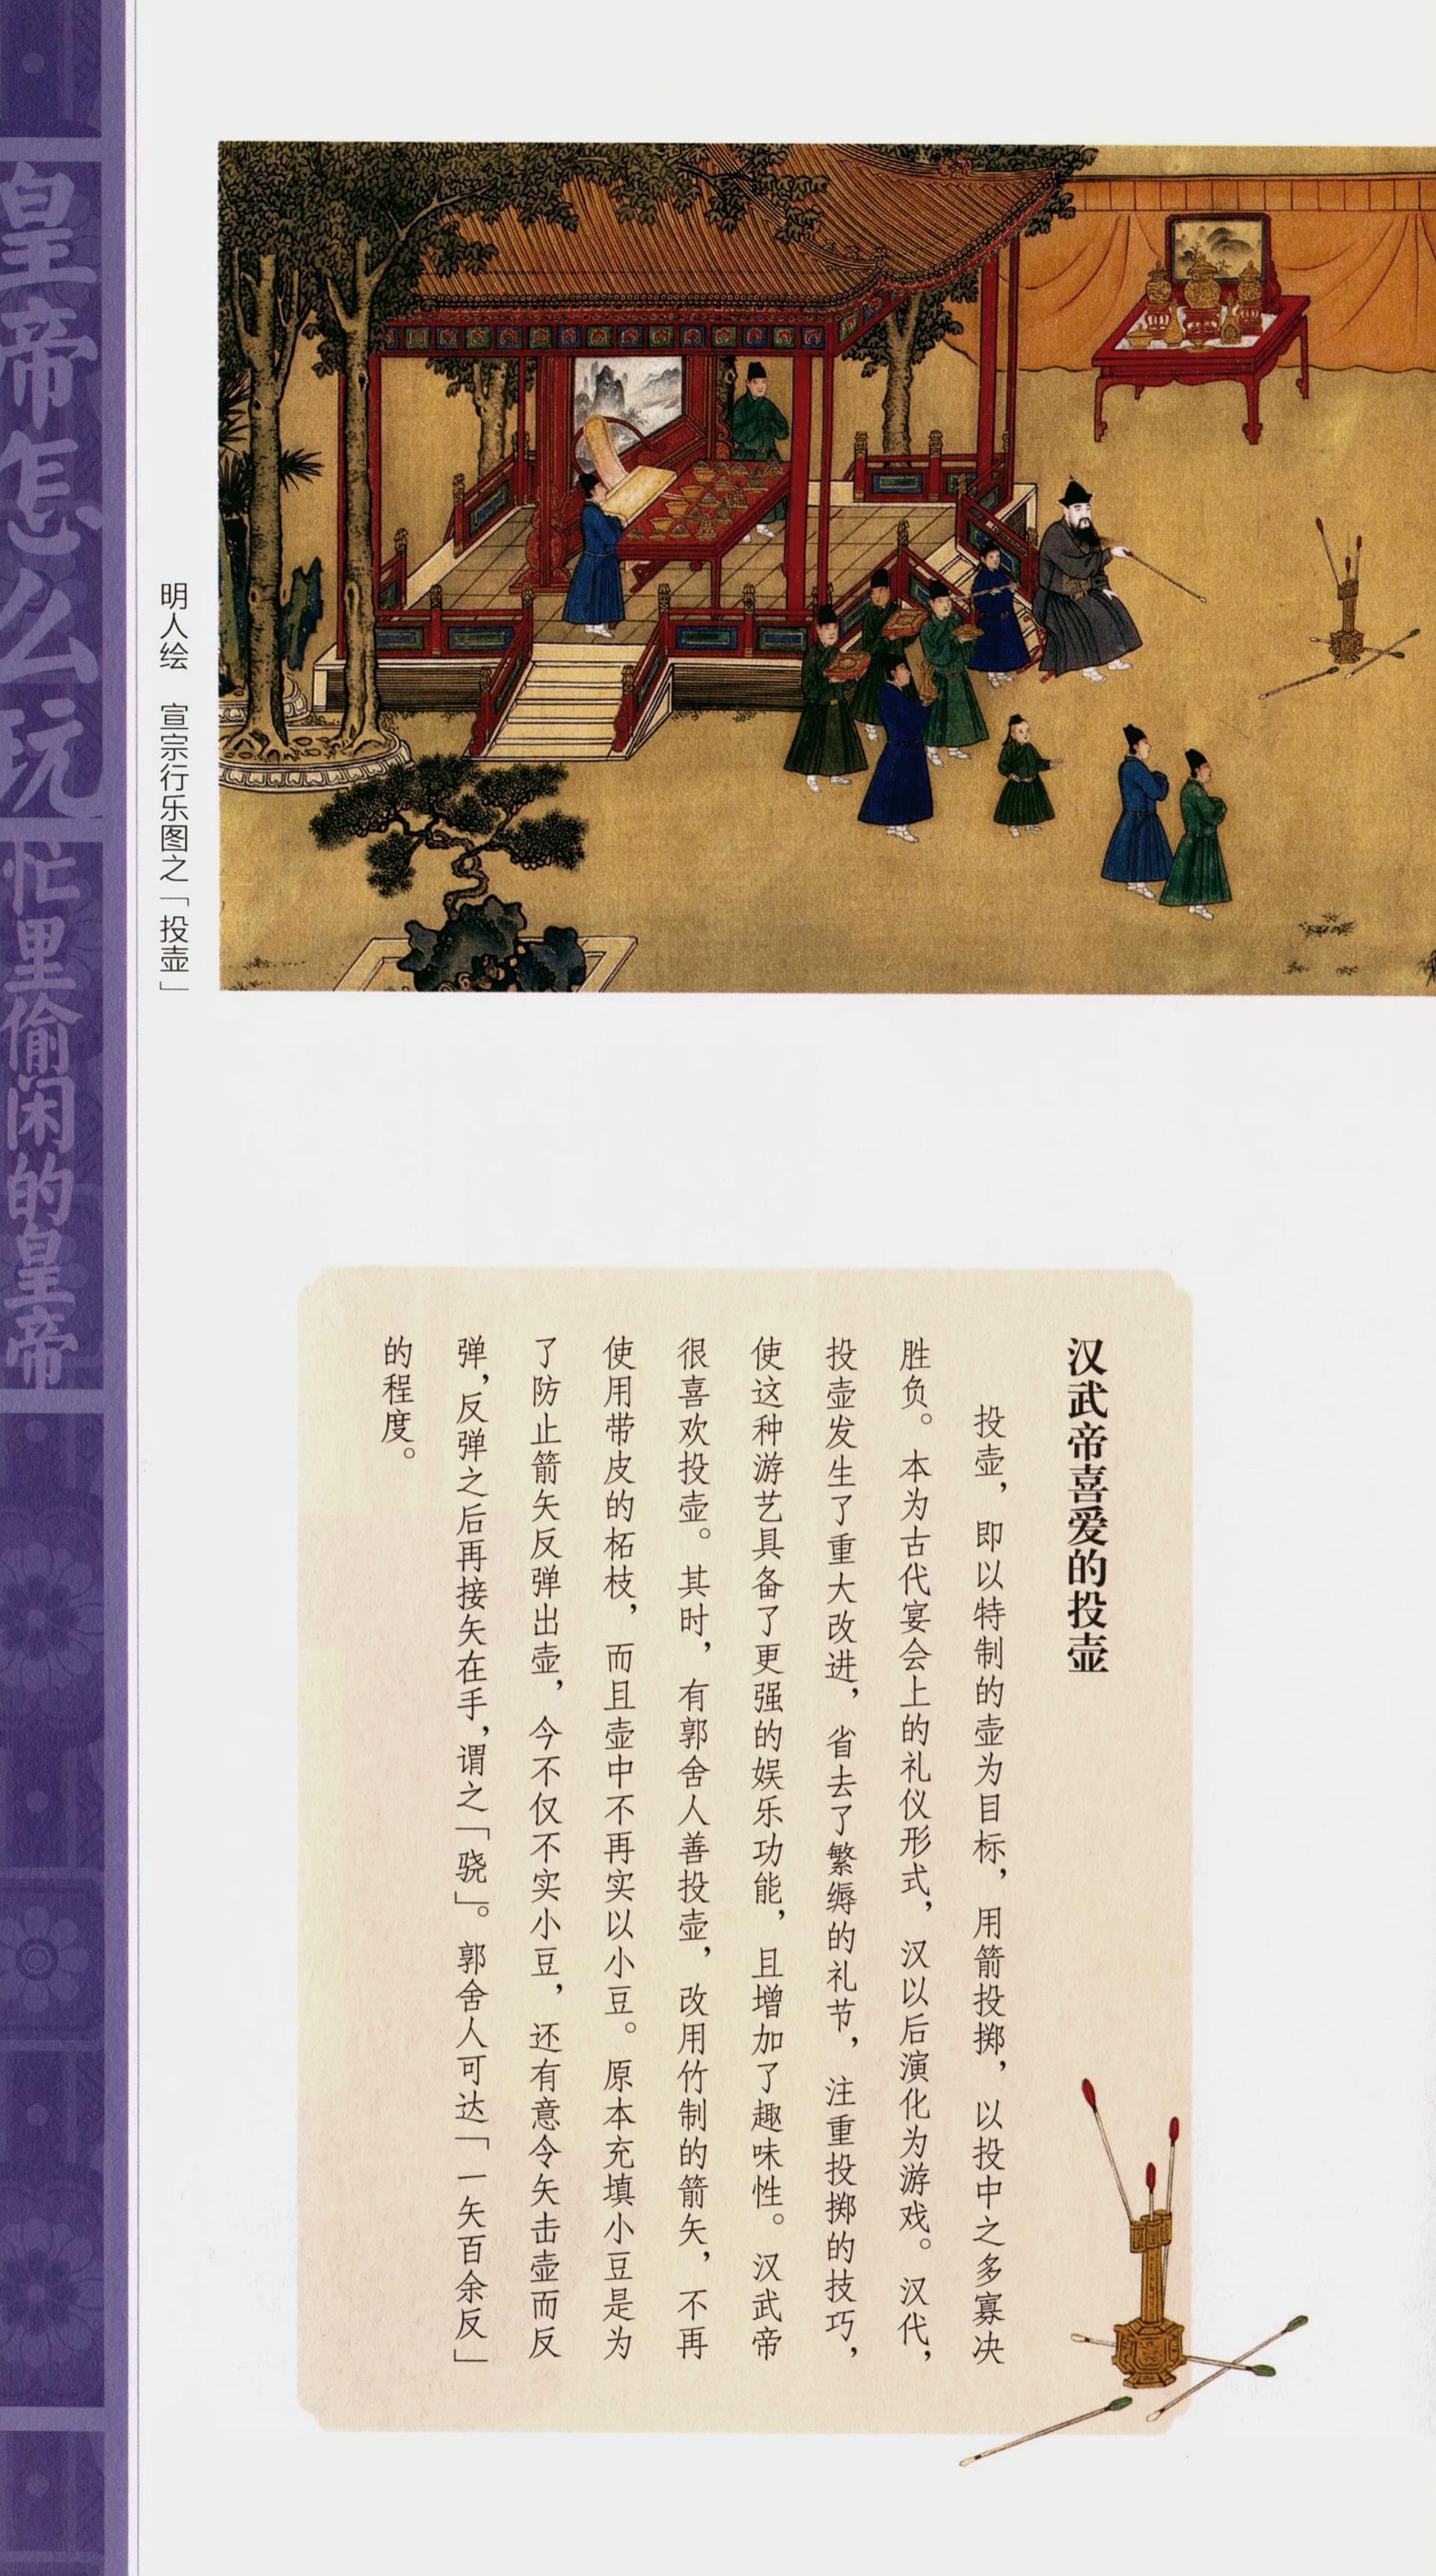 皇帝怎么玩
忙里偷闲的皇帝
明人绘　宣宗行乐图之「投壶」
汉武帝喜爱的投壶
投壶，即以特制的壶为目标，用箭投掷，以投中之多寡决
胜负。本为古代宴会上的礼仪形式，汉以后演化为游戏。汉代，
投壶发生了重大改进，省去了繁缛的礼节，注重投掷的技巧，
使这种游艺具备了更强的娱乐功能，且增加了趣味性。汉武帝
很喜欢投壶。其时，有郭舍人善投壶，改用竹制的箭矢，不再
使用带皮的柘枝，而且壶中不再实以小豆。原本充填小豆是为
了防止箭矢反弹出壶，今不仅不实小豆，还有意令矢击壶而反
弹，反弹之后再接矢在手，谓之「骁」。郭舍人可达「一矢百余反」
的程度。